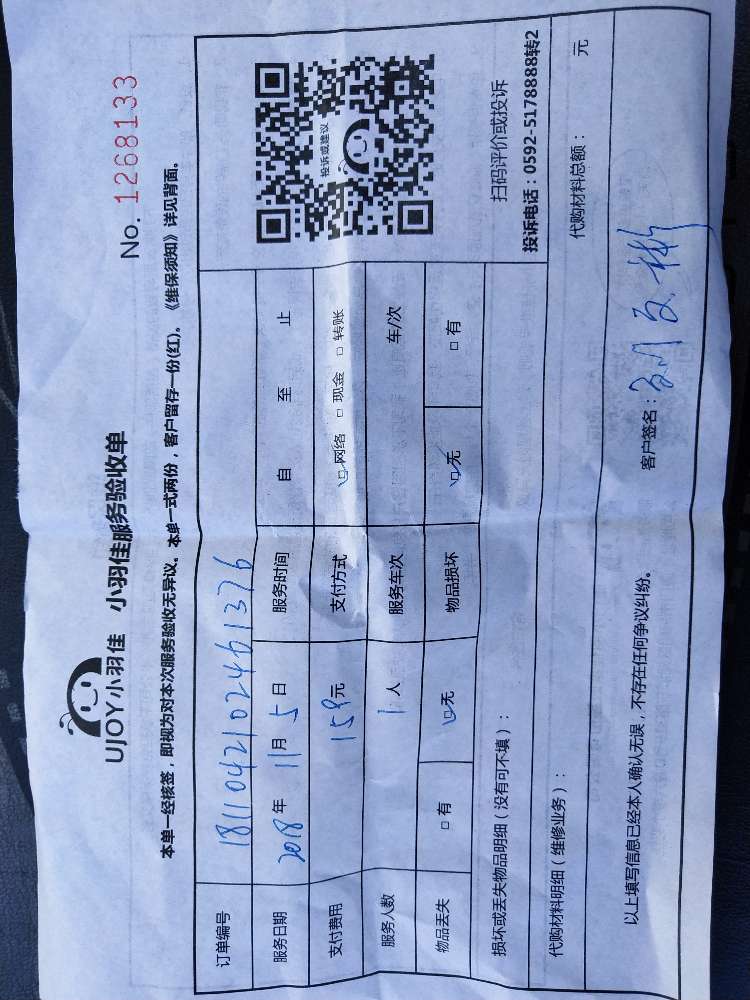 UJOY小羽佳 小羽佳服务验收单
No. 1268133
本单一经核签，即视为对本次服务验收无异议。本单一式两份，客户留存一份(红)。《维保须知》详见背面。
订单编号 1811042102461376
服务日期 2018年 11月 5日 服务时间 自 至 止
支付费用 159元 支付方式 ☑网络 □现金 □转账
服务人数 1人 服务车次 车/次
物品丢失 □有 ☑无 物品损坏 ☑无 □有
投诉或建议
扫码评价或投诉
投诉电话：0592-5178888转2
损坏或丢失物品明细（没有可不填）：
代购材料明细（维修业务）： 代购材料总额： 元
以上填写信息已经本人确认无误，不存在任何争议纠纷。 客户签名：